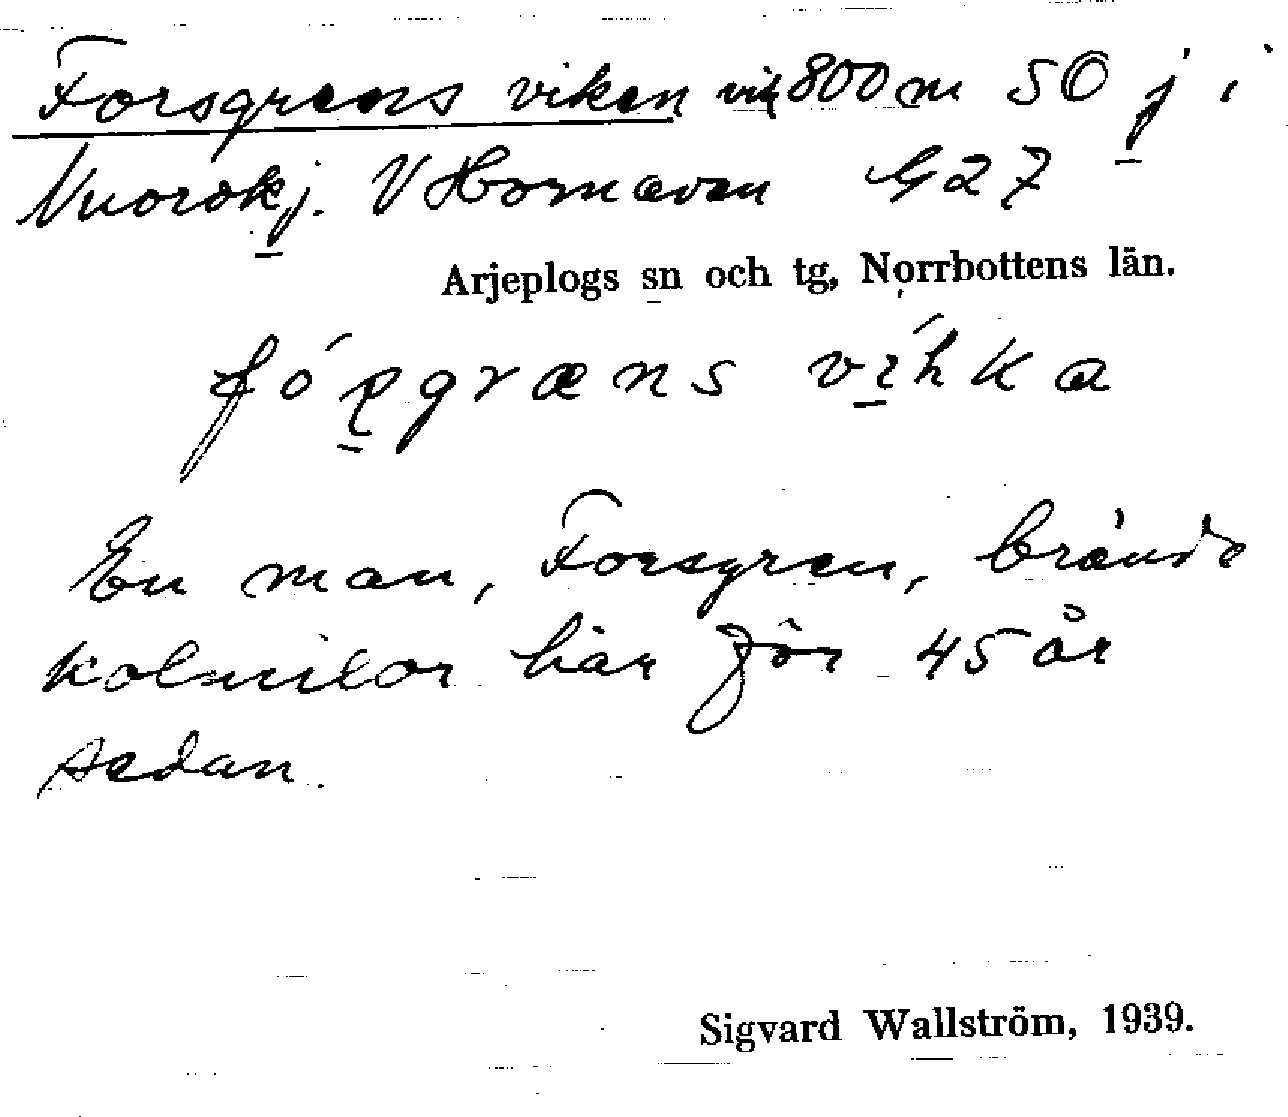 Forsgrens viken vik 800 m SO j i
Nuorokj. V Hornavan G 27
Arjeplogs sn och tg, Norrbottens län.
fórgræns víhka
En man, Forsgren, brände
kolmilor här för 45 år
sedan.
Sigvard Wallström, 1939.